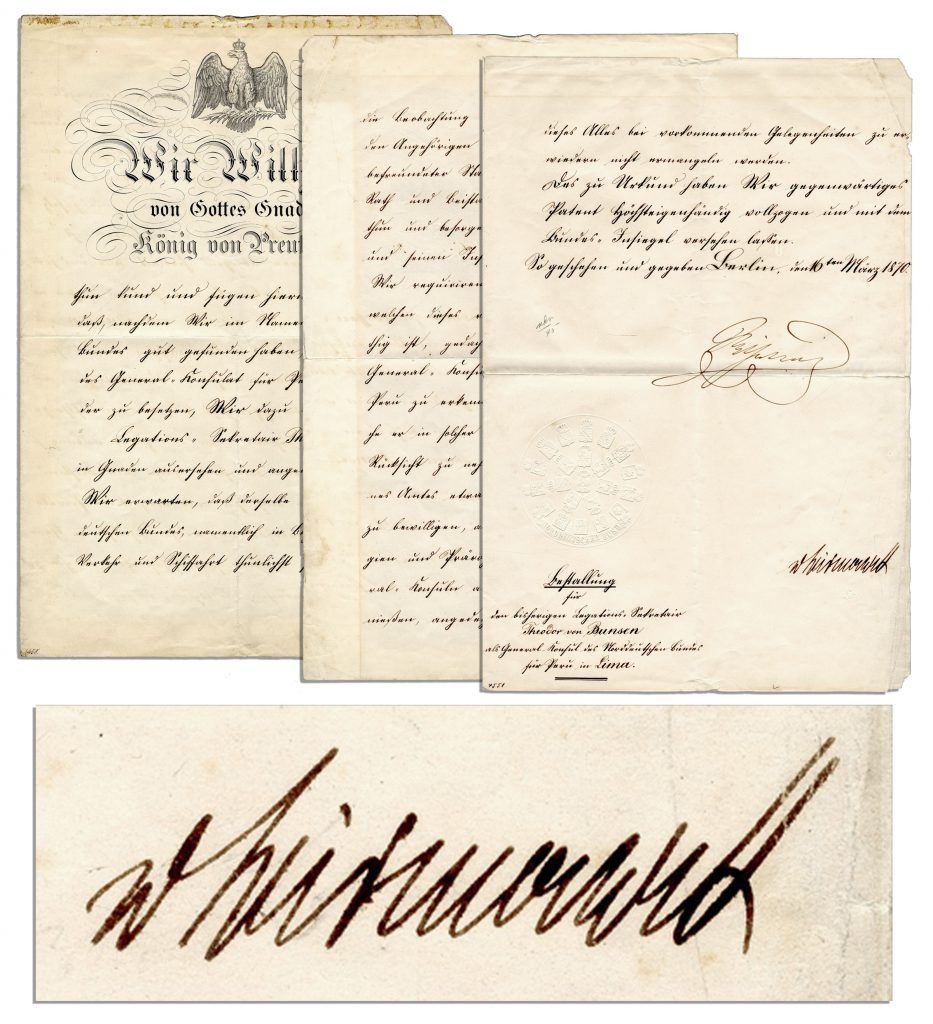 Wir Wil
von Gottes Gnad
König von Preu
thun kund und fügen hierm
daß, nachdem Wir im Namen
Bundes gut gefunden haben,
des General-Konsulat für Pe
der zu besetzen, Wir dazu
Legations-Sekretair Th
in Gnaden ausersehen und ange
Wir erwarten, daß derselbe
deutschen Bundes, namentlich in B
Verkehr und Schiffahrt thunlichst
die Beobachtung
den Angehörigen
befreundeter Sta
Rath und Beista
thun und besorge
und seinen In
Wir requiriren
welchen dieses
thig ist, gedach
General-Konsu
Peru zu erken
che er in solcher
Rücksicht zu neh
nes Amtes etwa
zu bewilligen, a
gien und Präro
ral-Konsuln a
nießen, angede
dieses Alles bei vorkommenden Gelegenheiten zu er-
wiedern nicht ermangeln werden.
Des zu Urkund haben Wir gegenwärtiges
Patent Höchsteigenhändig vollzogen und mit dem
Bundes-Insiegel versehen lassen.
So geschehen und gegeben Berlin, den 16ten März 1870.
v Bismarck
Bestallung
für
den bisherigen Legations-Sekretair
Theodor von Bunsen
als General-Konsul des Norddeutschen Bundes
für Peru in Lima.
v Bismarck